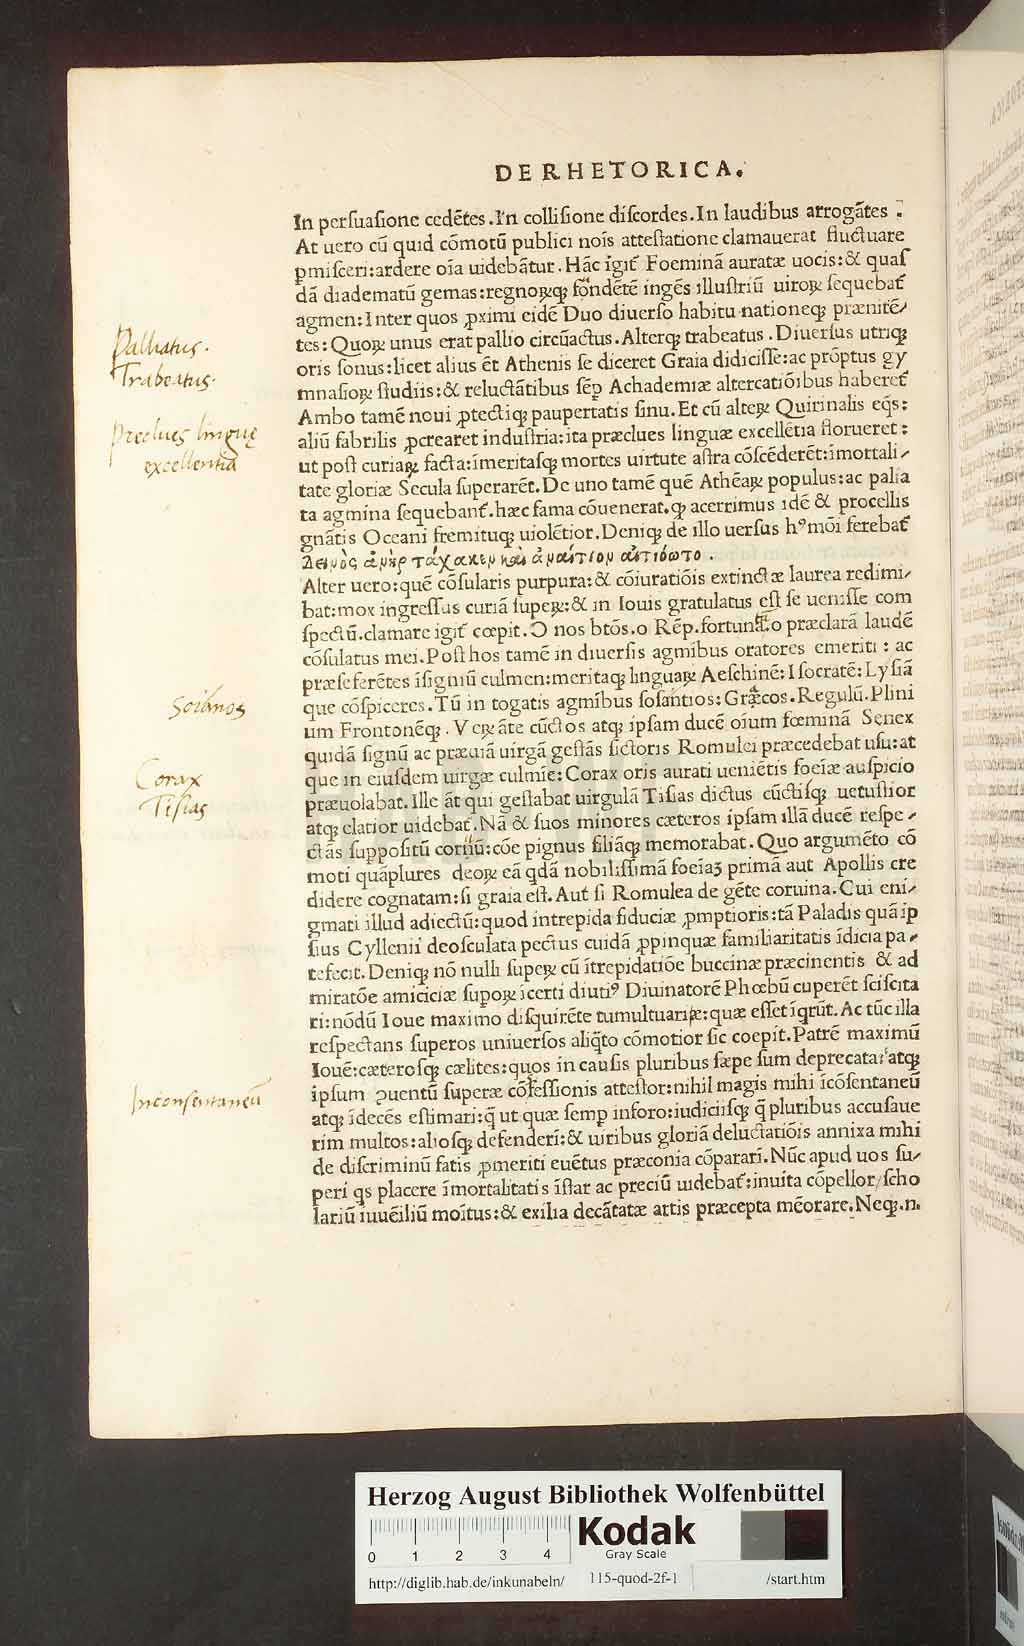 DE RHETORICA.
In persuasione cedẽtes. In collisione discordes. In laudibus arrogãtes :
At uero cũ quid cõmotũ publici nois attestatione clamauerat fluctuare
ꝑmisceri: ardere oĩa uidebãtur. Hãc igit̃ Foeminã auratæ uocis: & quas
dã diadematũ gemas: regnoꝝꝙ fõndẽtẽ ingẽs illustriũ uiroꝝ sequebat̃
agmen: Inter quos ꝓximi eidẽ Duo diuerso habitu nationeꝙ prænitẽ-
tes: Quoꝝ unus erat pallio circũactus. Alterꝙ trabeatus. Diuersus utriꝙ
oris sonus: licet alius ẽt Athenis se diceret Graia didicisse: ac prõptus gy
mnasioꝝ studiis: & reluctãtibus sẽꝑ Achademiæ altercatiõibus haberet̃
Ambo tamẽ noui ꝓtectiꝙ paupertatis sinu. Et cũ alteꝝ Quirinalis eq̃s:
aliũ fabrilis ꝓcrearet industria: ita præclues linguæ excellẽtia florueret :
ut post curiaꝝ facta: ĩmeritasꝙ mortes uirtute astra cõscẽderẽt: ĩmortali-
tate gloriæ Secula superarẽt. De uno tamẽ quẽ Athẽaꝝ populus: ac palia
ta agmina sequebant̃. hæc fama cõuenerat. ꝙ acerrimus idẽ & procellis
gnãtis Oceani fremituꝙ uiolẽtior. Deniꝙ de illo uersus hꝰ mõi ferebat̃
Δεινὸς ἀνὴρ τάχα κεν καὶ ἀναίτιον αἰτιόωτο .
Alter uero: quẽ cõsularis purpura: & cõiuratiõis extinctæ laurea redimi-
bat: mox ingressus curiã supeꝝ: & in Iouis gratulatus est se uenisse com
spectũ. clamare igit̃ cœpit. O nos btõs. o Rẽp. fortunatã. o præclarã laudẽ
cõsulatus mei. Post hos tamẽ in diuersis agmĩbus oratores emeriti : ac
præseferẽtes ĩsigniũ culmen: meritaꝙ linguaꝝ Aeschinẽ: Isocratẽ: Lysiã
que cõspiceres. Tũ in togatis agmĩbus sosantios: Græcos. Regulũ. Plini
um Frontonẽꝙ. Veꝝ ãte cũctos atꝙ ipsam ducẽ oĩum fœminã Senex
quidã signũ ac præuiã uirgã gestãs lictoris Romulei præcedebat usu: at
que in eiusdem uirgæ culmĩe: Corax oris aurati ueniẽtis foeĩæ auspicio
præuolabat. Ille ãt qui gestabat uirgulã Tisias dictus cũctisꝙ uetustior
atꝙ elatior uidebat̃. Nã & suos minores cæteros ipsam illã ducẽ respe-
ctãs suppositũ cornũ: cõe pignus filiãꝙ memorabat. Quo argumẽto cõ
moti quãplures deoꝝ eã qdã nobilissimã foeĩaꝫ primã aut Apollis cre
didere cognatam: si graia est. Aut si Romulea de gẽte coruina. Cui eni-
gmati illud adiectũ: quod intrepida fiduciæ ꝓmptioris: tã Paladis quã ip
sius Cyllenii deosculata pectus cuidã ꝓpinquæ familiaritatis ĩdicia pa-
tefecit. Deniꝙ nõ nulli supeꝝ cũ ĩtrepidatiõe buccinæ præcinentis & ad
miratõe amiciciæ supoꝝ ĩcerti diutiꝰ Diuinatorẽ Phœbũ cuperẽt sciscita
ri: nõdũ Ioue maximo disquirẽte tumultuariæ: quæ esset ĩqrũt. Ac tũc illa
respectans superos uniuersos aliq̃to cõmotior sic coepit. Patrẽ maximũ
Iouẽ: cæterosꝙ cælites: quos in causis pluribus sæpe sum deprecata: atꝙ
ipsum ꝯuentũ superæ cõfessionis attestor: nihil magis mihi ĩcõsentaneũ
atꝙ ĩdecẽs estimari: q̃ ut quæ semp inforo: iudiciisꝙ q̃ pluribus accusaue
rim multos: aliosꝙ defenderĩ: & uiribus gloriã deluctatiõis annixa mihi
de discriminũ fatis ꝓmeriti euẽtus præconia cõpararĩ. Nũc apud uos su-
peri qs placere ĩmortalitatis ĩstar ac preciũ uidebat̃: inuita cõpellor/ scho
lariũ iuuẽiliũ moĩtus: & exilia decãtatæ artis præcepta mẽorare. Neꝙ. n.
Palliatus.
Trabeatus.
Preclues linguę
excellentia
Soĩãnos
Corax
Tisias
Inconsentaneũ
HAB WF
Herzog August Bibliothek Wolfenbüttel
0 1 2 3 4
Kodak
Gray Scale
http://diglib.hab.de/inkunabeln/ 115-quod-2f-1 /start.htm